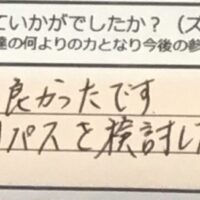 ていかがでしたか？（ス
達の何よりの力となり今後の参
良かったです
パスを検討し